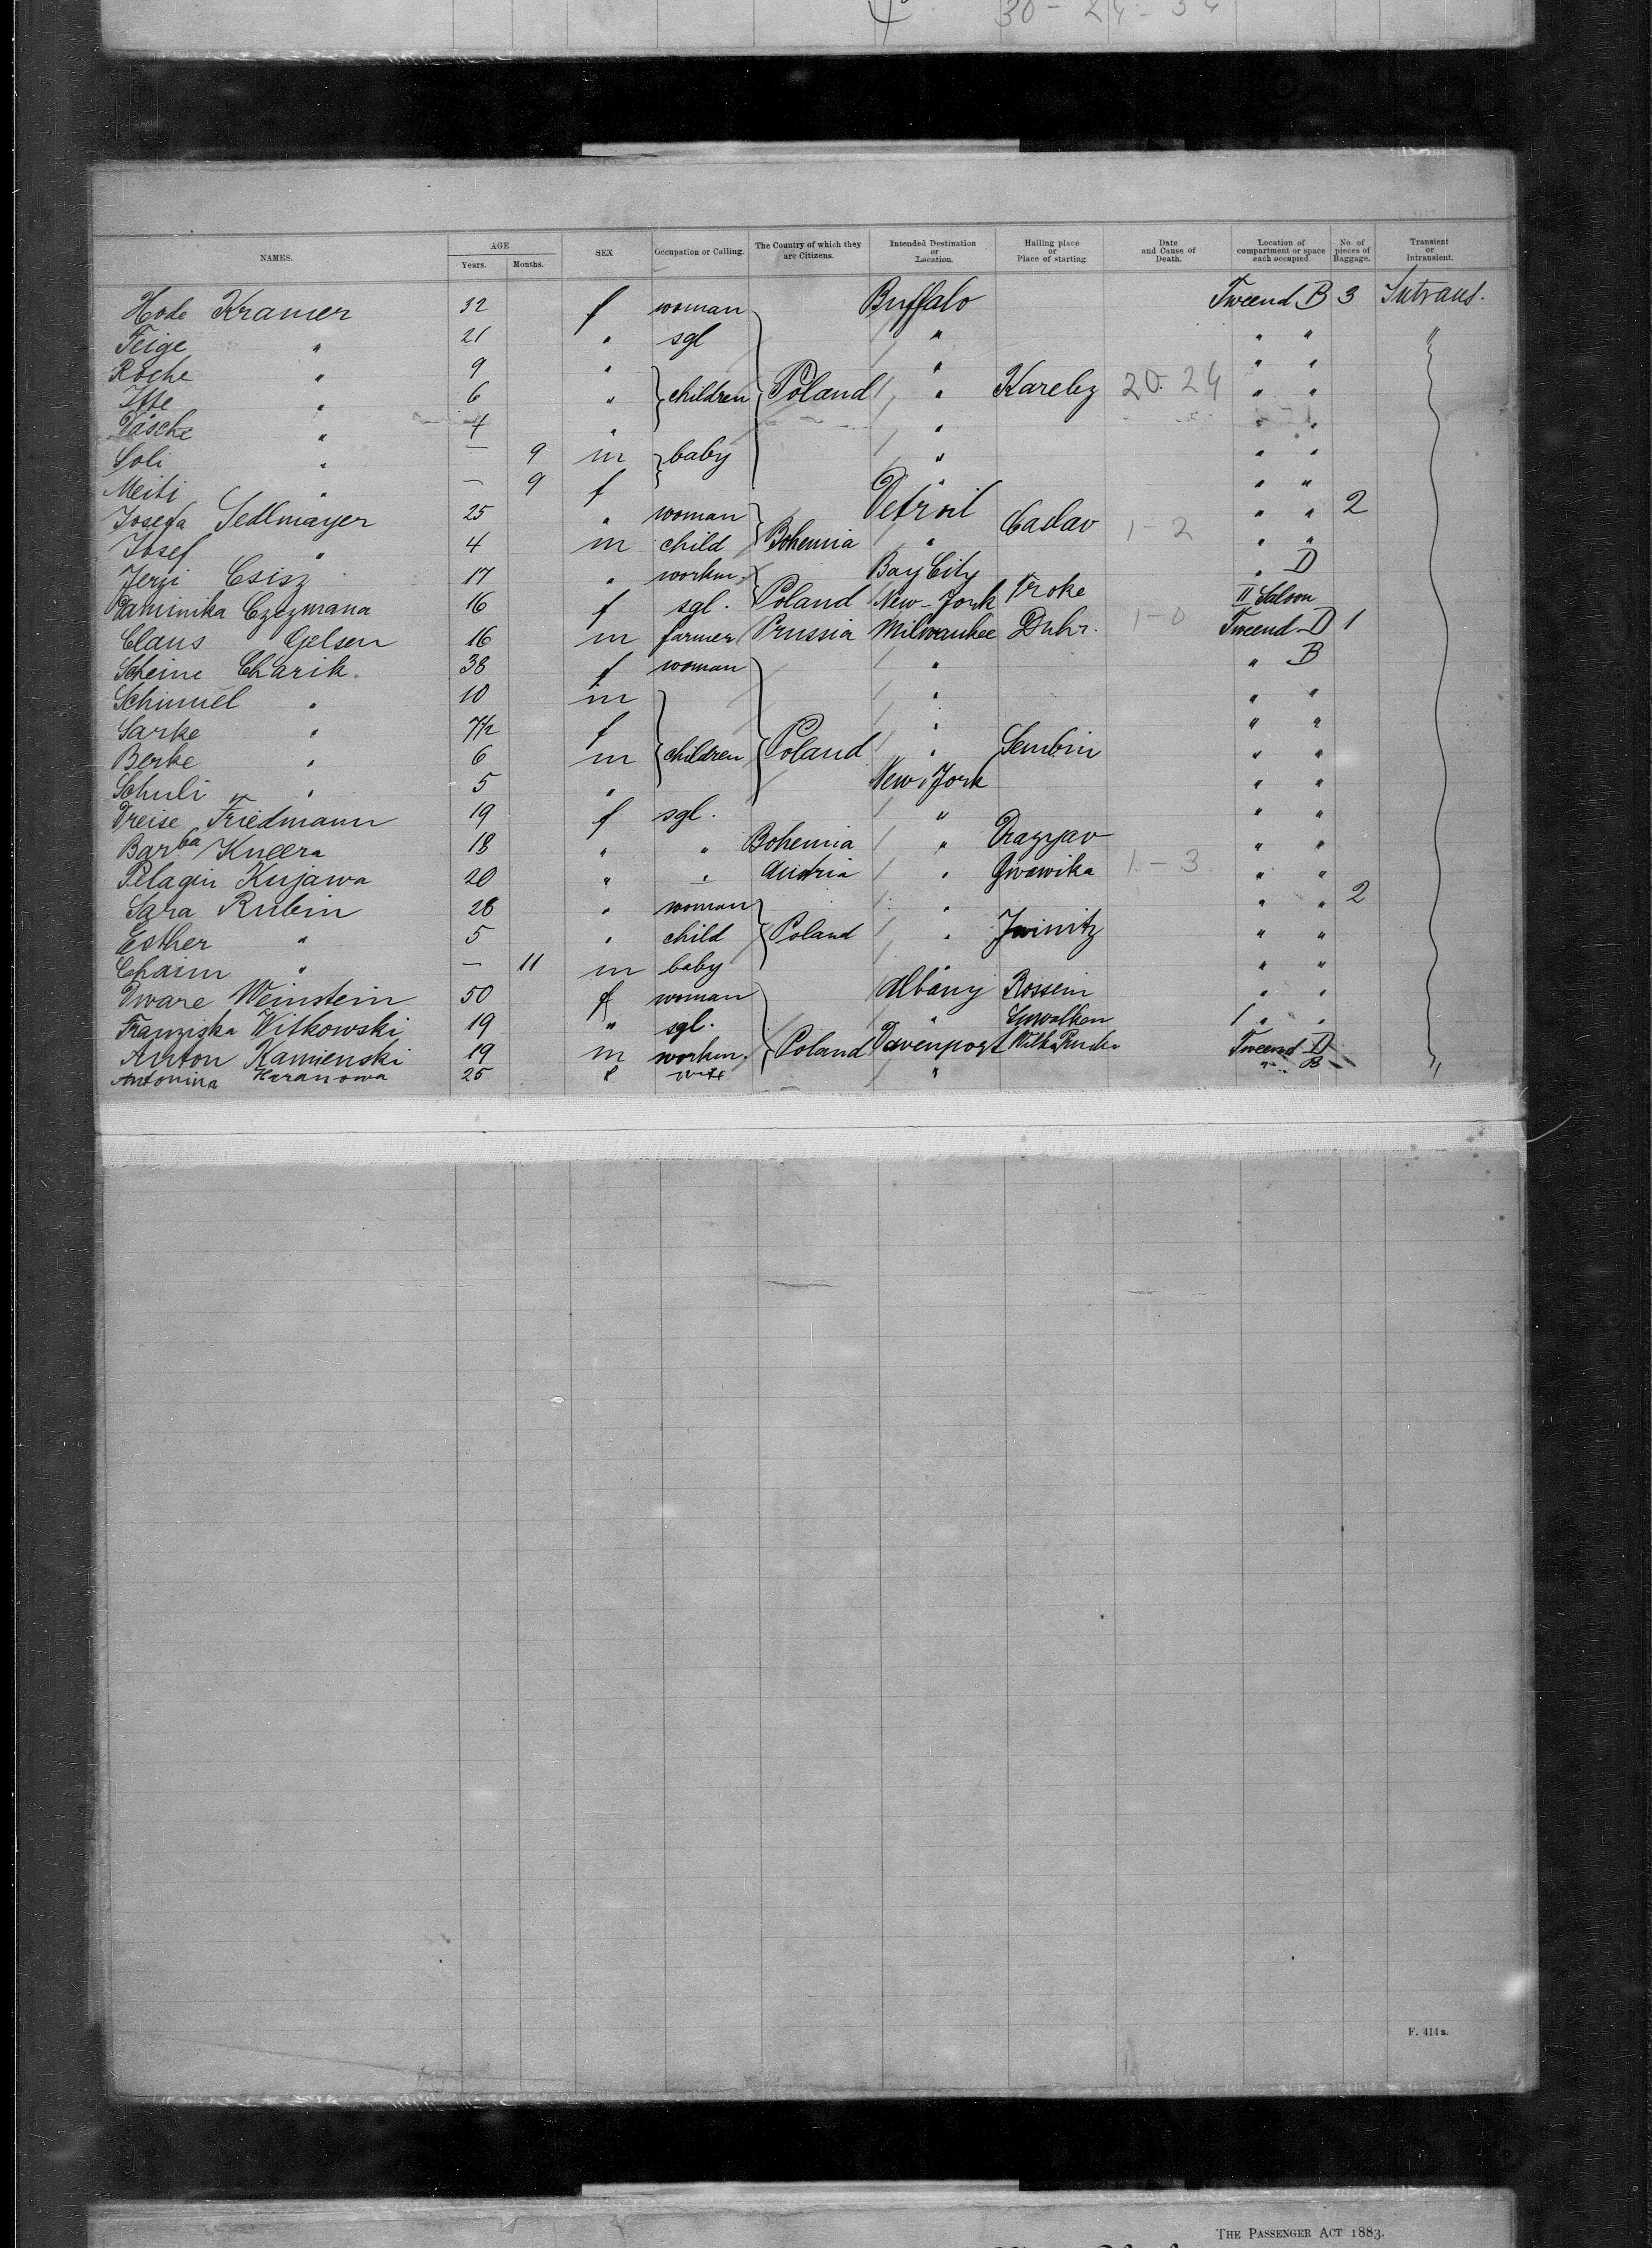 30 - 24 - 34
NAMES. AGE Years. Months. SEX Occupation or Calling. The Country of which they are Citizens. Intended Destination or Location. Hailing place or Place of starting. Date and Cause of Death. Location of compartment or space each occupied. No. of pieces of Baggage. Transient or Intransient.
Hode Kramer 32 f woman Buffalo Tweend B 3 Intrans.
Feige " 21 " sgl " " " "
Roche " 9 " " " "
Itte " 6 " children Poland " Kareliz 20. 24 " "
Dasche " 4 " " " "
Soli " — 9 m baby " " "
Meiti " — 9 f " " "
Josefa Sedlmayer 25 " woman Detroit Caslav " " 2
Josef " 4 m child Bohemia " 1 - 2 " "
Jerzi Csisz 17 " workm. Bay City " D
Daminika Czezmana 16 f sgl. Poland New-York Troke II Saloon
Claus Gelsen 16 m farmer Prussia Milwaukee Duhr. 1 - 0 Tweend D 1
Scheine Charik. 38 f woman " " B
Schimmel " 10 m " " "
Sarke " 7½ f " " "
Berke " 6 m children Poland " Sembrin " "
Schuli " 5 " New-York " "
Dreise Friedmann 19 f sgl. " " "
Barba Kucera 18 " " Bohemia " " "
Pelagin Kujawa 20 " " Austria " 1 - 3 " "
Sara Rubin 28 " woman " " " 2
Esther " 5 " child Poland " " "
Chaim " — 11 m baby " " "
Dware Weinstein 50 f woman Albany Rossein " "
Franziska Witkowski 19 " sgl. " Suwalken " "
Anton Kamienski 19 m workm. Poland Davenport Tweend D
Antonina Haranowa 25 f wife " " B "
F. 414a.
THE PASSENGER ACT 1883.